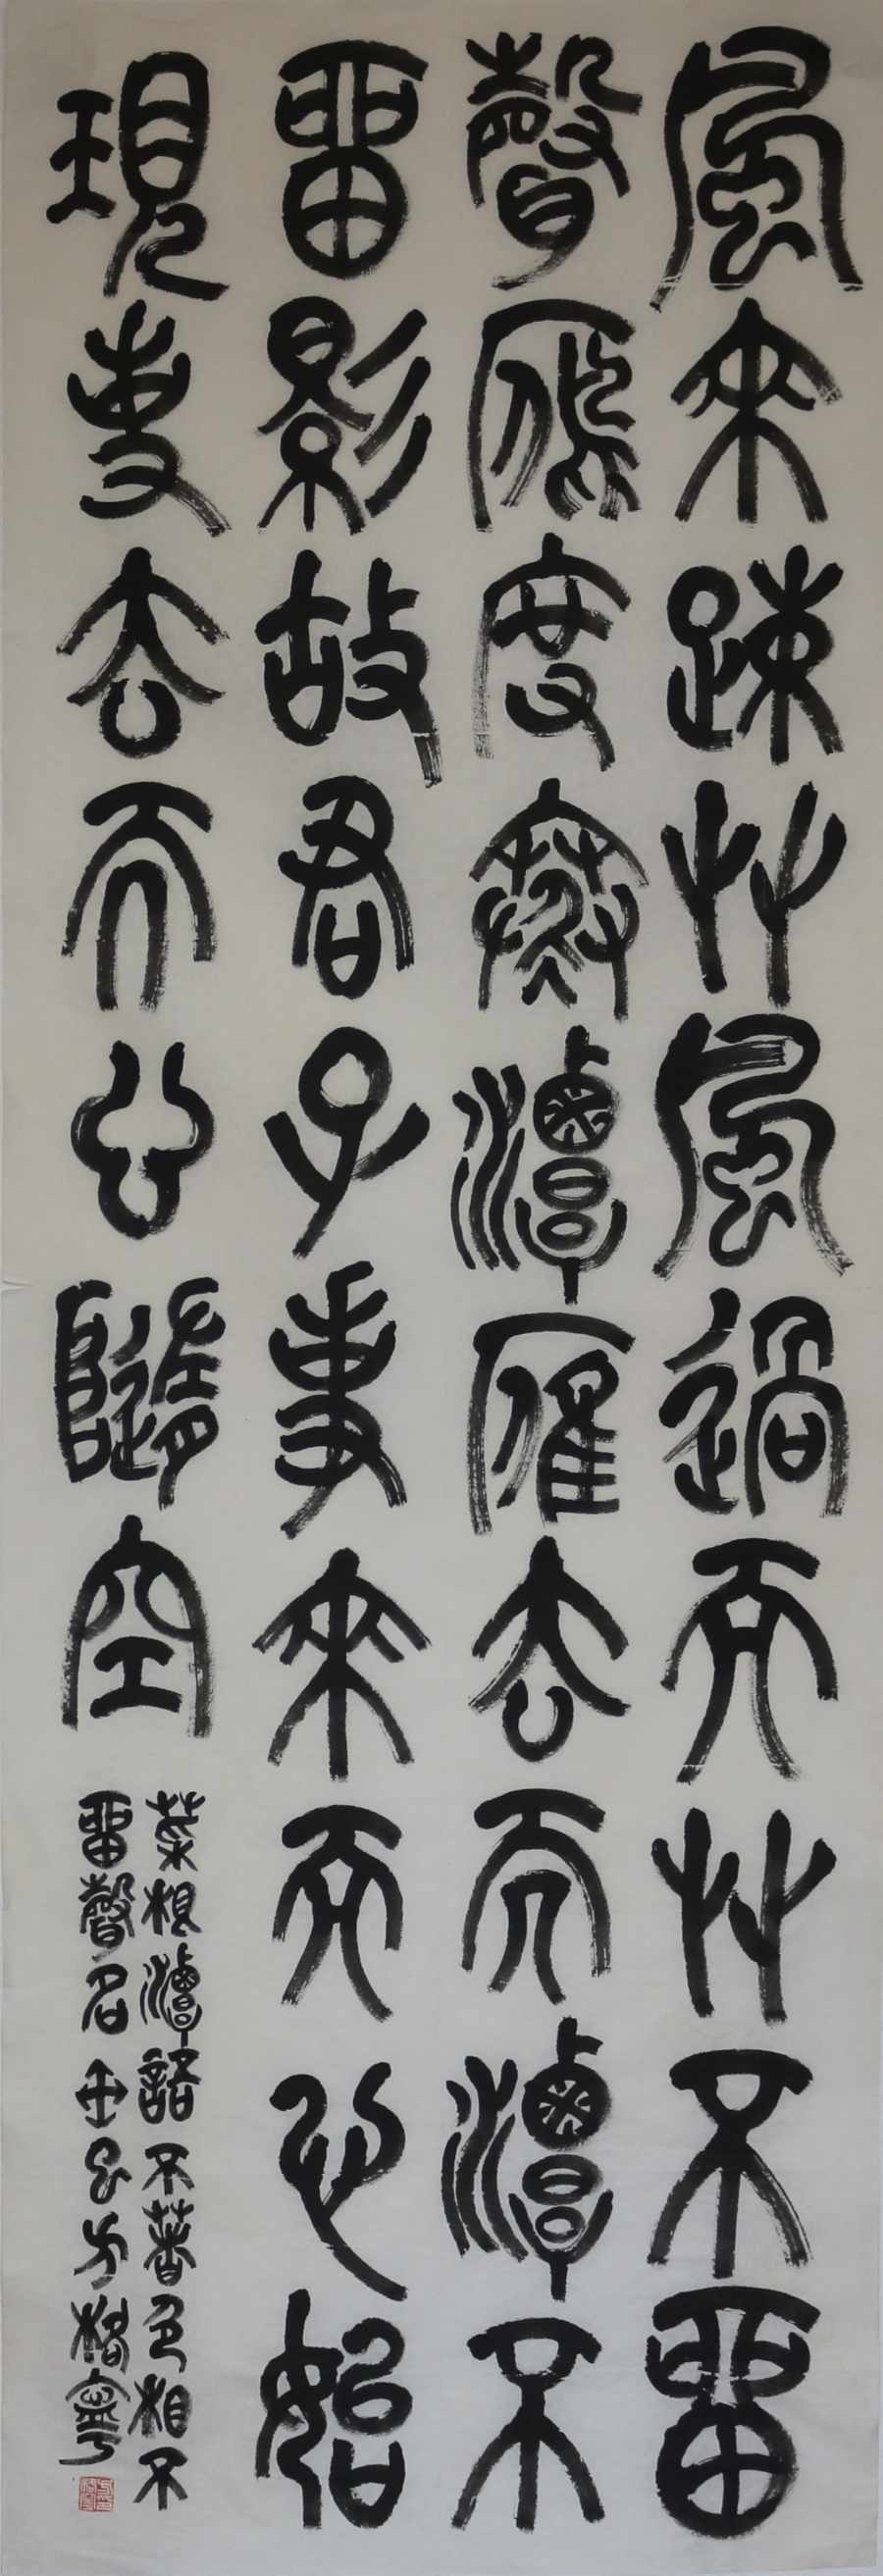 風來疎竹風過而竹不留
聲鴈度寒潭雁去而潭不
留影故君子事來而心始
現事去而心隨空
菜根潭語不著色相不
留聲名方寧